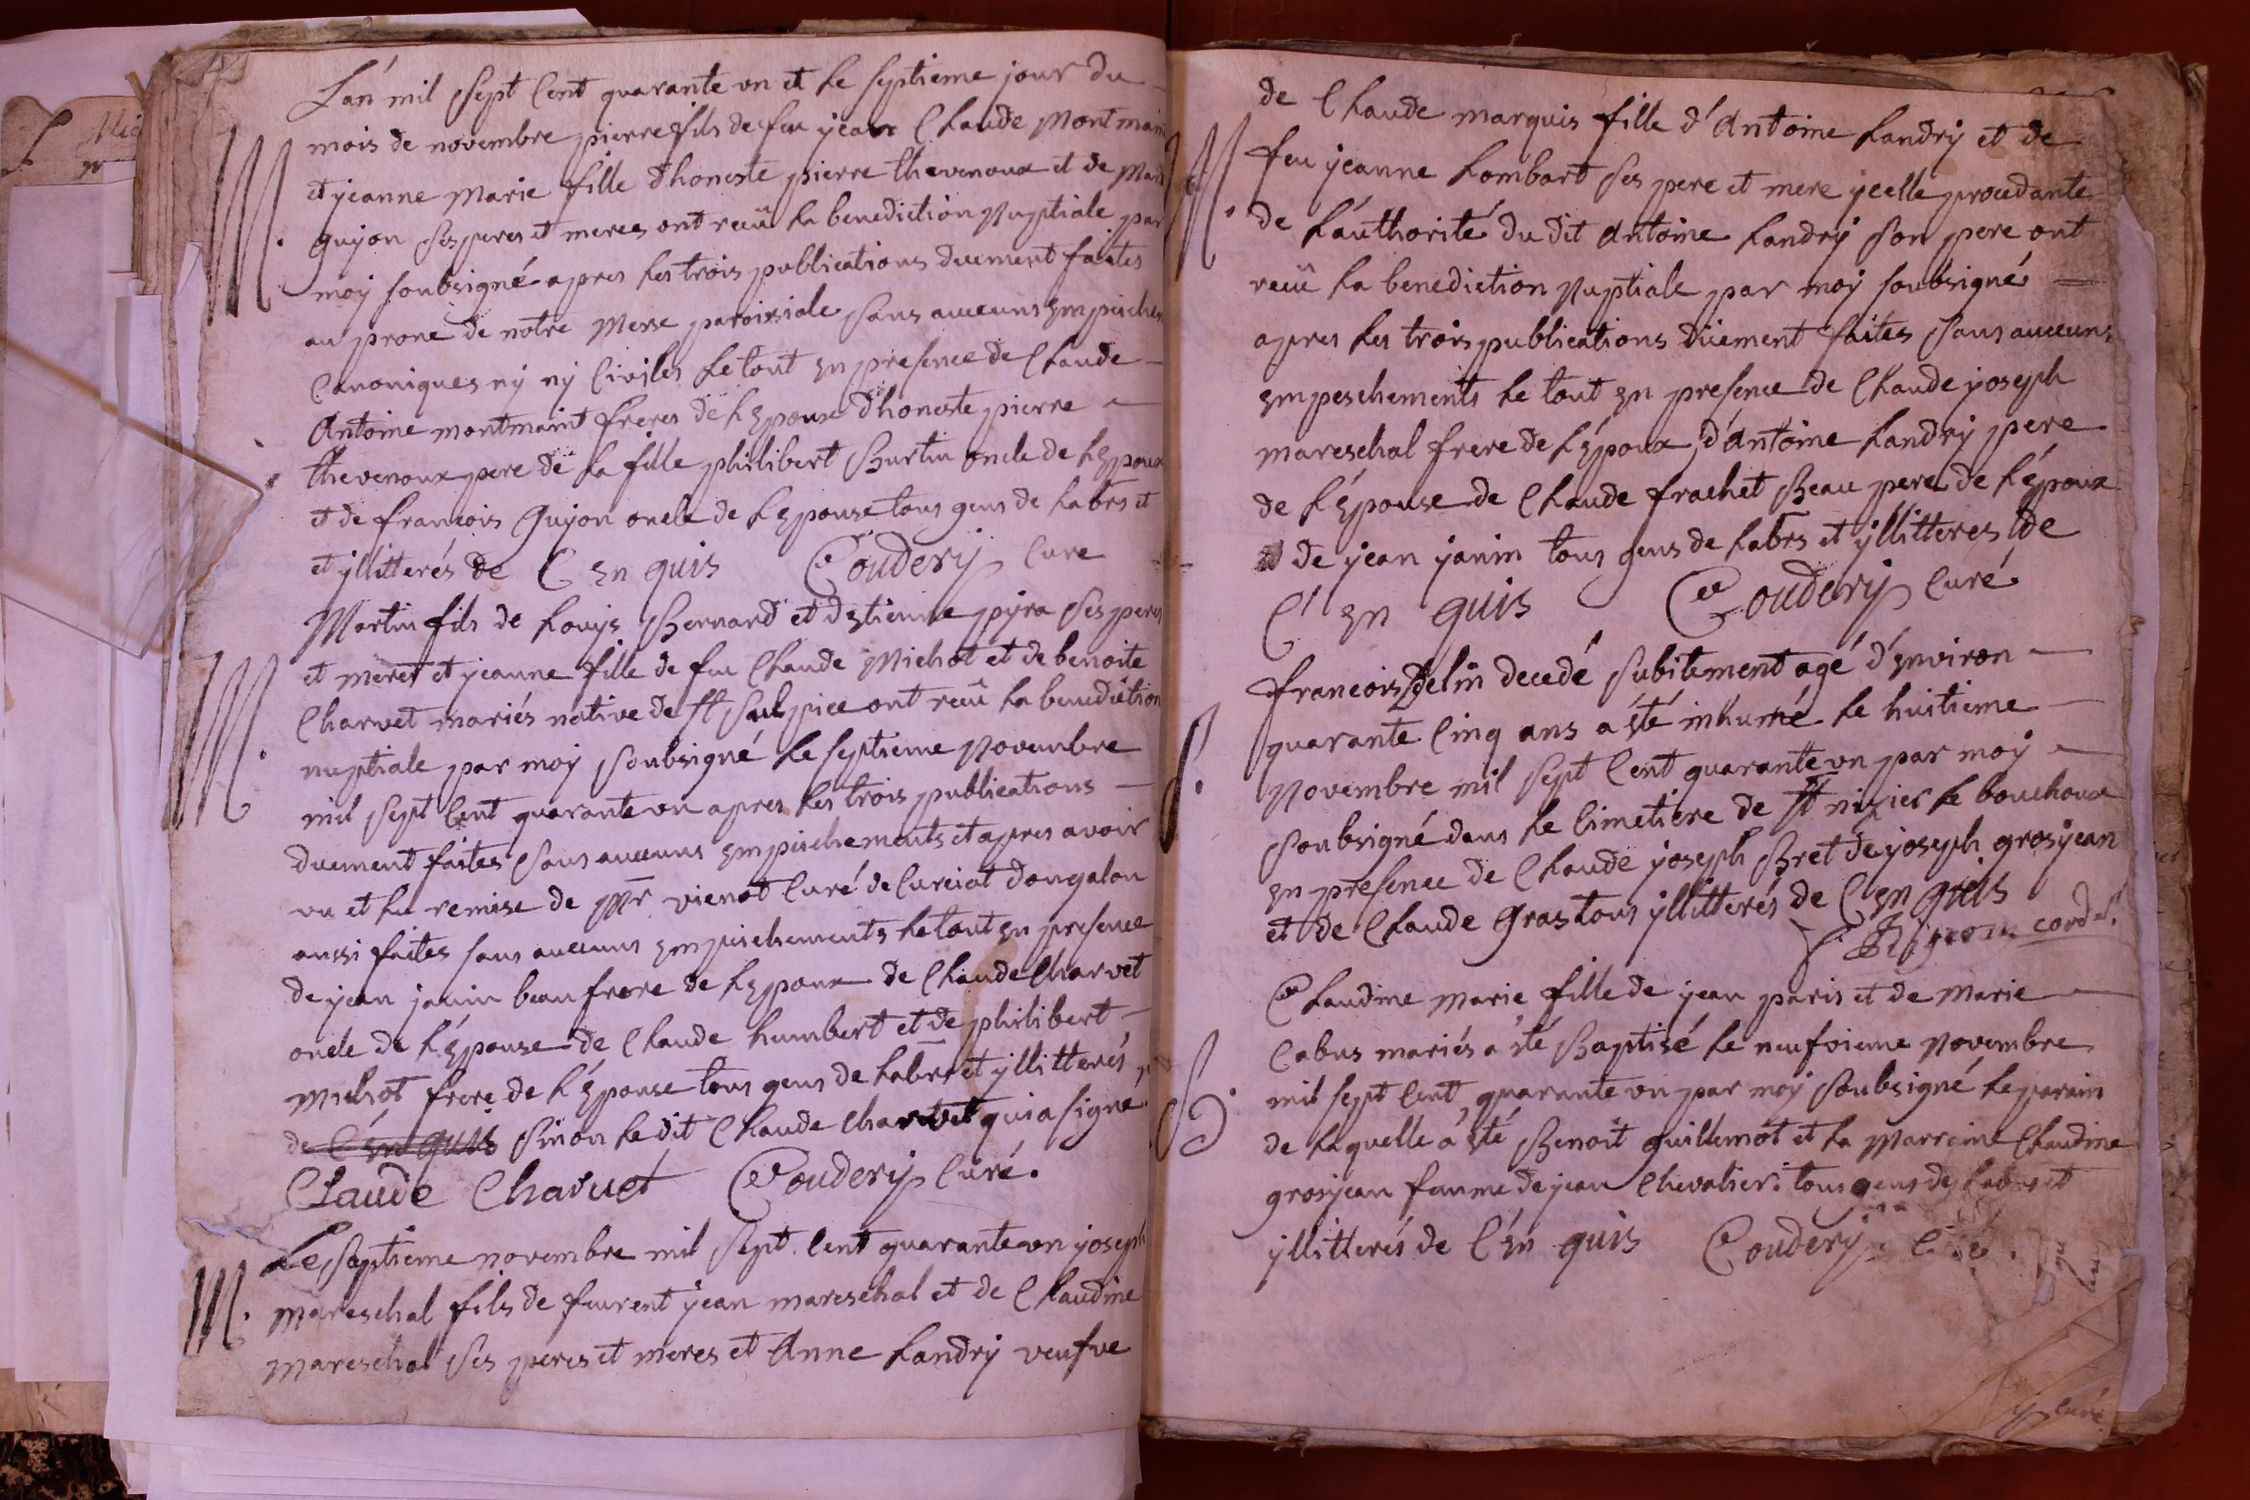 L'an mil sept cent quarante un et le septieme jour du
M. mois de novembre pierre fils de feu jean Claude Montmain
et jeanne Marie fille d'honeste pierre thevenoux et de Marie
guyon ses peres et meres ont reçû la benediction Nuptiale par
moy soubsigné apres les trois publications duement faites
au prone de notre Messe paroissiale sans aucuns empeschem
Canoniques ny ny Civiles le tout en presence de Claude
Antoine montmaint freres de l'Epoux d'honeste pierre
thevenoux pere de la fille philibert Burtin oncle de l'Epoux
et de francois Guyon oncle de l'Epouse tous gens de labrs et
et yllitterés de C en quis Coudery Cure
Martin fils de Louys Bernard et d'Etienne pyra ses peres
M. et meres et jeanne fille de feu Claude Michot et de benoite
Charvet mariés native de St Sulpice ont reçû la benediction
nuptiale par moy soubsigné le septieme Novembre
mil sept cent quarante un apres les trois publications
duement faites sans aucuns empeschements et apres avoir
vu et lu remise de Mr vienot Curé de Curciat dongalon
aussi faites sans aucuns empeschements le tout en presence
de jean janin beaufrere de l'Epoux de Claude Charvet
oncle de l'Epouse de Claude humbert et de philibert
Michot frere de l'Epouse tous gens de labrs et yllitterés
de C en quis sinon le dit Claude Charvet qui a signe
Claude Charuet Coudery Curé.
Le Septieme novembre mil sept cent quarante un joseph
M. Mareschal fils de feu rent jean mareschal et de Claudine
Mareschal ses peres et meres et Anne Landry veufve
de Claude marquis fille d'Antoine Landry et de
M. feu jeanne Lombart ses pere et mere ycelle procedante
de l'authorité du dit Antoine Landry son pere ont
reçû la benediction Nuptiale par moy soubsigné
apres les trois publications düement faites sans aucuns
empeschements le tout en presence de Claude joseph
mareschal frere de l'époux, d'Antoine Landry pere
de l'Epouse de Claude frachet Beau pere de l'époux
de jean janin tous gens de labrs et yllitteres de
C en quis Coudery Curé
francois Belin decedé subitement agé d'environ
S. quarante Cinq ans a été inhumé le huitieme
Novembre mil sept cent quarante un par moy
soubsigné dans le Cimetiere de St nizier le bouchoux
en presence de Claude joseph Bret de joseph grosjean
et de Claude Gras tous yllitterés de C en quis
cord.
Claudine Marie fille de jean paris et de Marie
Cabus mariés a été Baptisé le neufvieme Novembre
B. mil sept cent quarante un par moy soubsigné le parain
de laquelle a été Benoit guillemot et la Marreine Claudine
grosjean femme de jean Chevalier : tous gens de labrs et
yllitterés de C en quis Coudery
curé